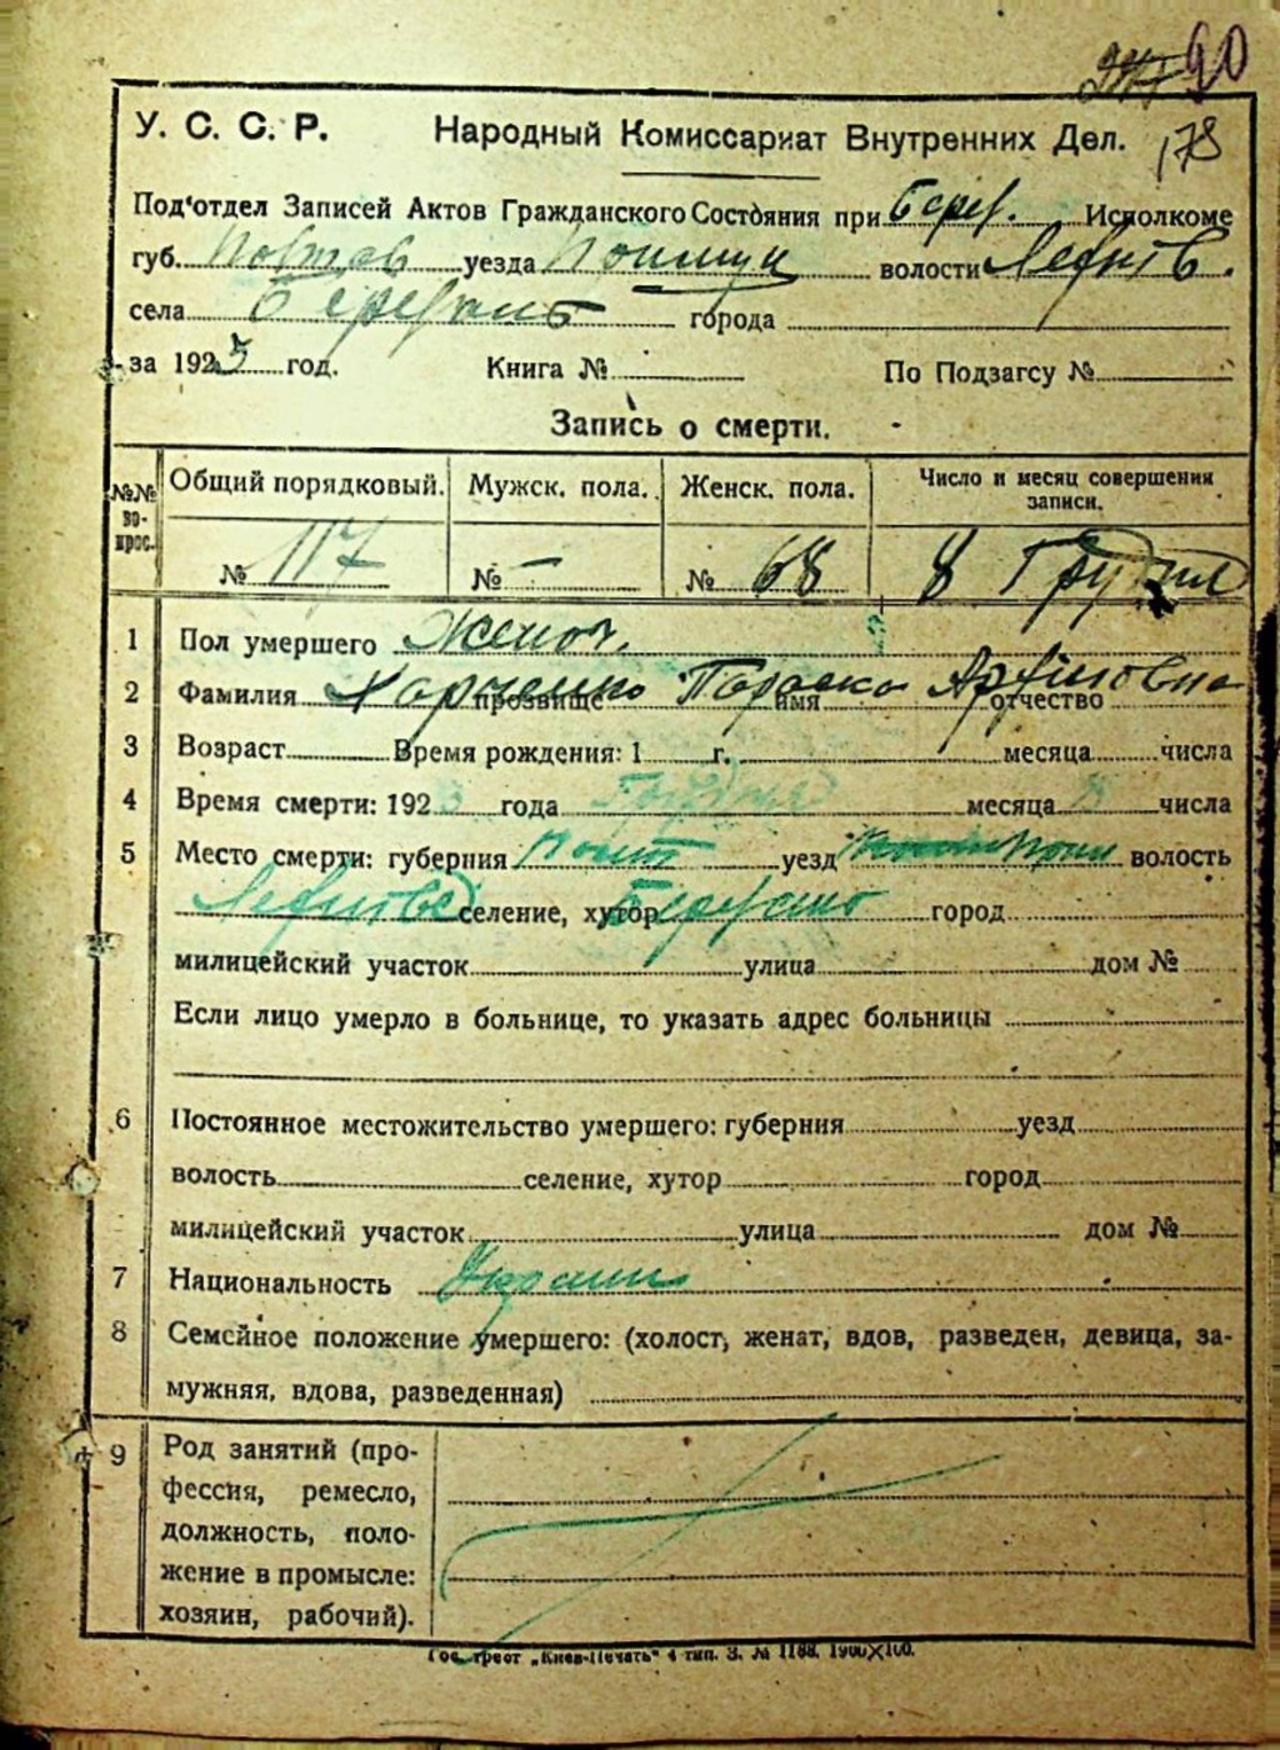 90
178
У. С. С. Р. Народный Комиссариат Внутренних Дел.
Под'отдел Записей Актов Гражданского Состояния при Исполкоме
губ. Полтав уезда волости
села города
за 1923 год. Книга № По Подзагсу №
Запись о смерти.
№№ вопрос. Общий порядковый. Мужск. пола. Женск. пола. Число и месяц совершения записи.
№ 117 № — № 68 8 Грудня
1 Пол умершего Женоч.
2 Фамилия Харченко прозвище Параска имя отчество
3 Возраст Время рождения: 1 г. месяца числа
4 Время смерти: 192 3 года Грудня месяца числа
5 Место смерти: губерния Полт уезд волость
селение, хутор город
милицейский участок улица дом №
Если лицо умерло в больнице, то указать адрес больницы
6 Постоянное местожительство умершего: губерния уезд
волость селение, хутор город
милицейский участок улица дом №
7 Национальность
8 Семейное положение умершего: (холост, женат, вдов, разведен, девица, за-
мужняя, вдова, разведенная)
9 Род занятий (про-
фессия, ремесло,
должность, поло-
жение в промысле:
хозяин, рабочий).
Гос. трест „Киев-Печать“ 4 тип. З. № 1188. 1900×100.